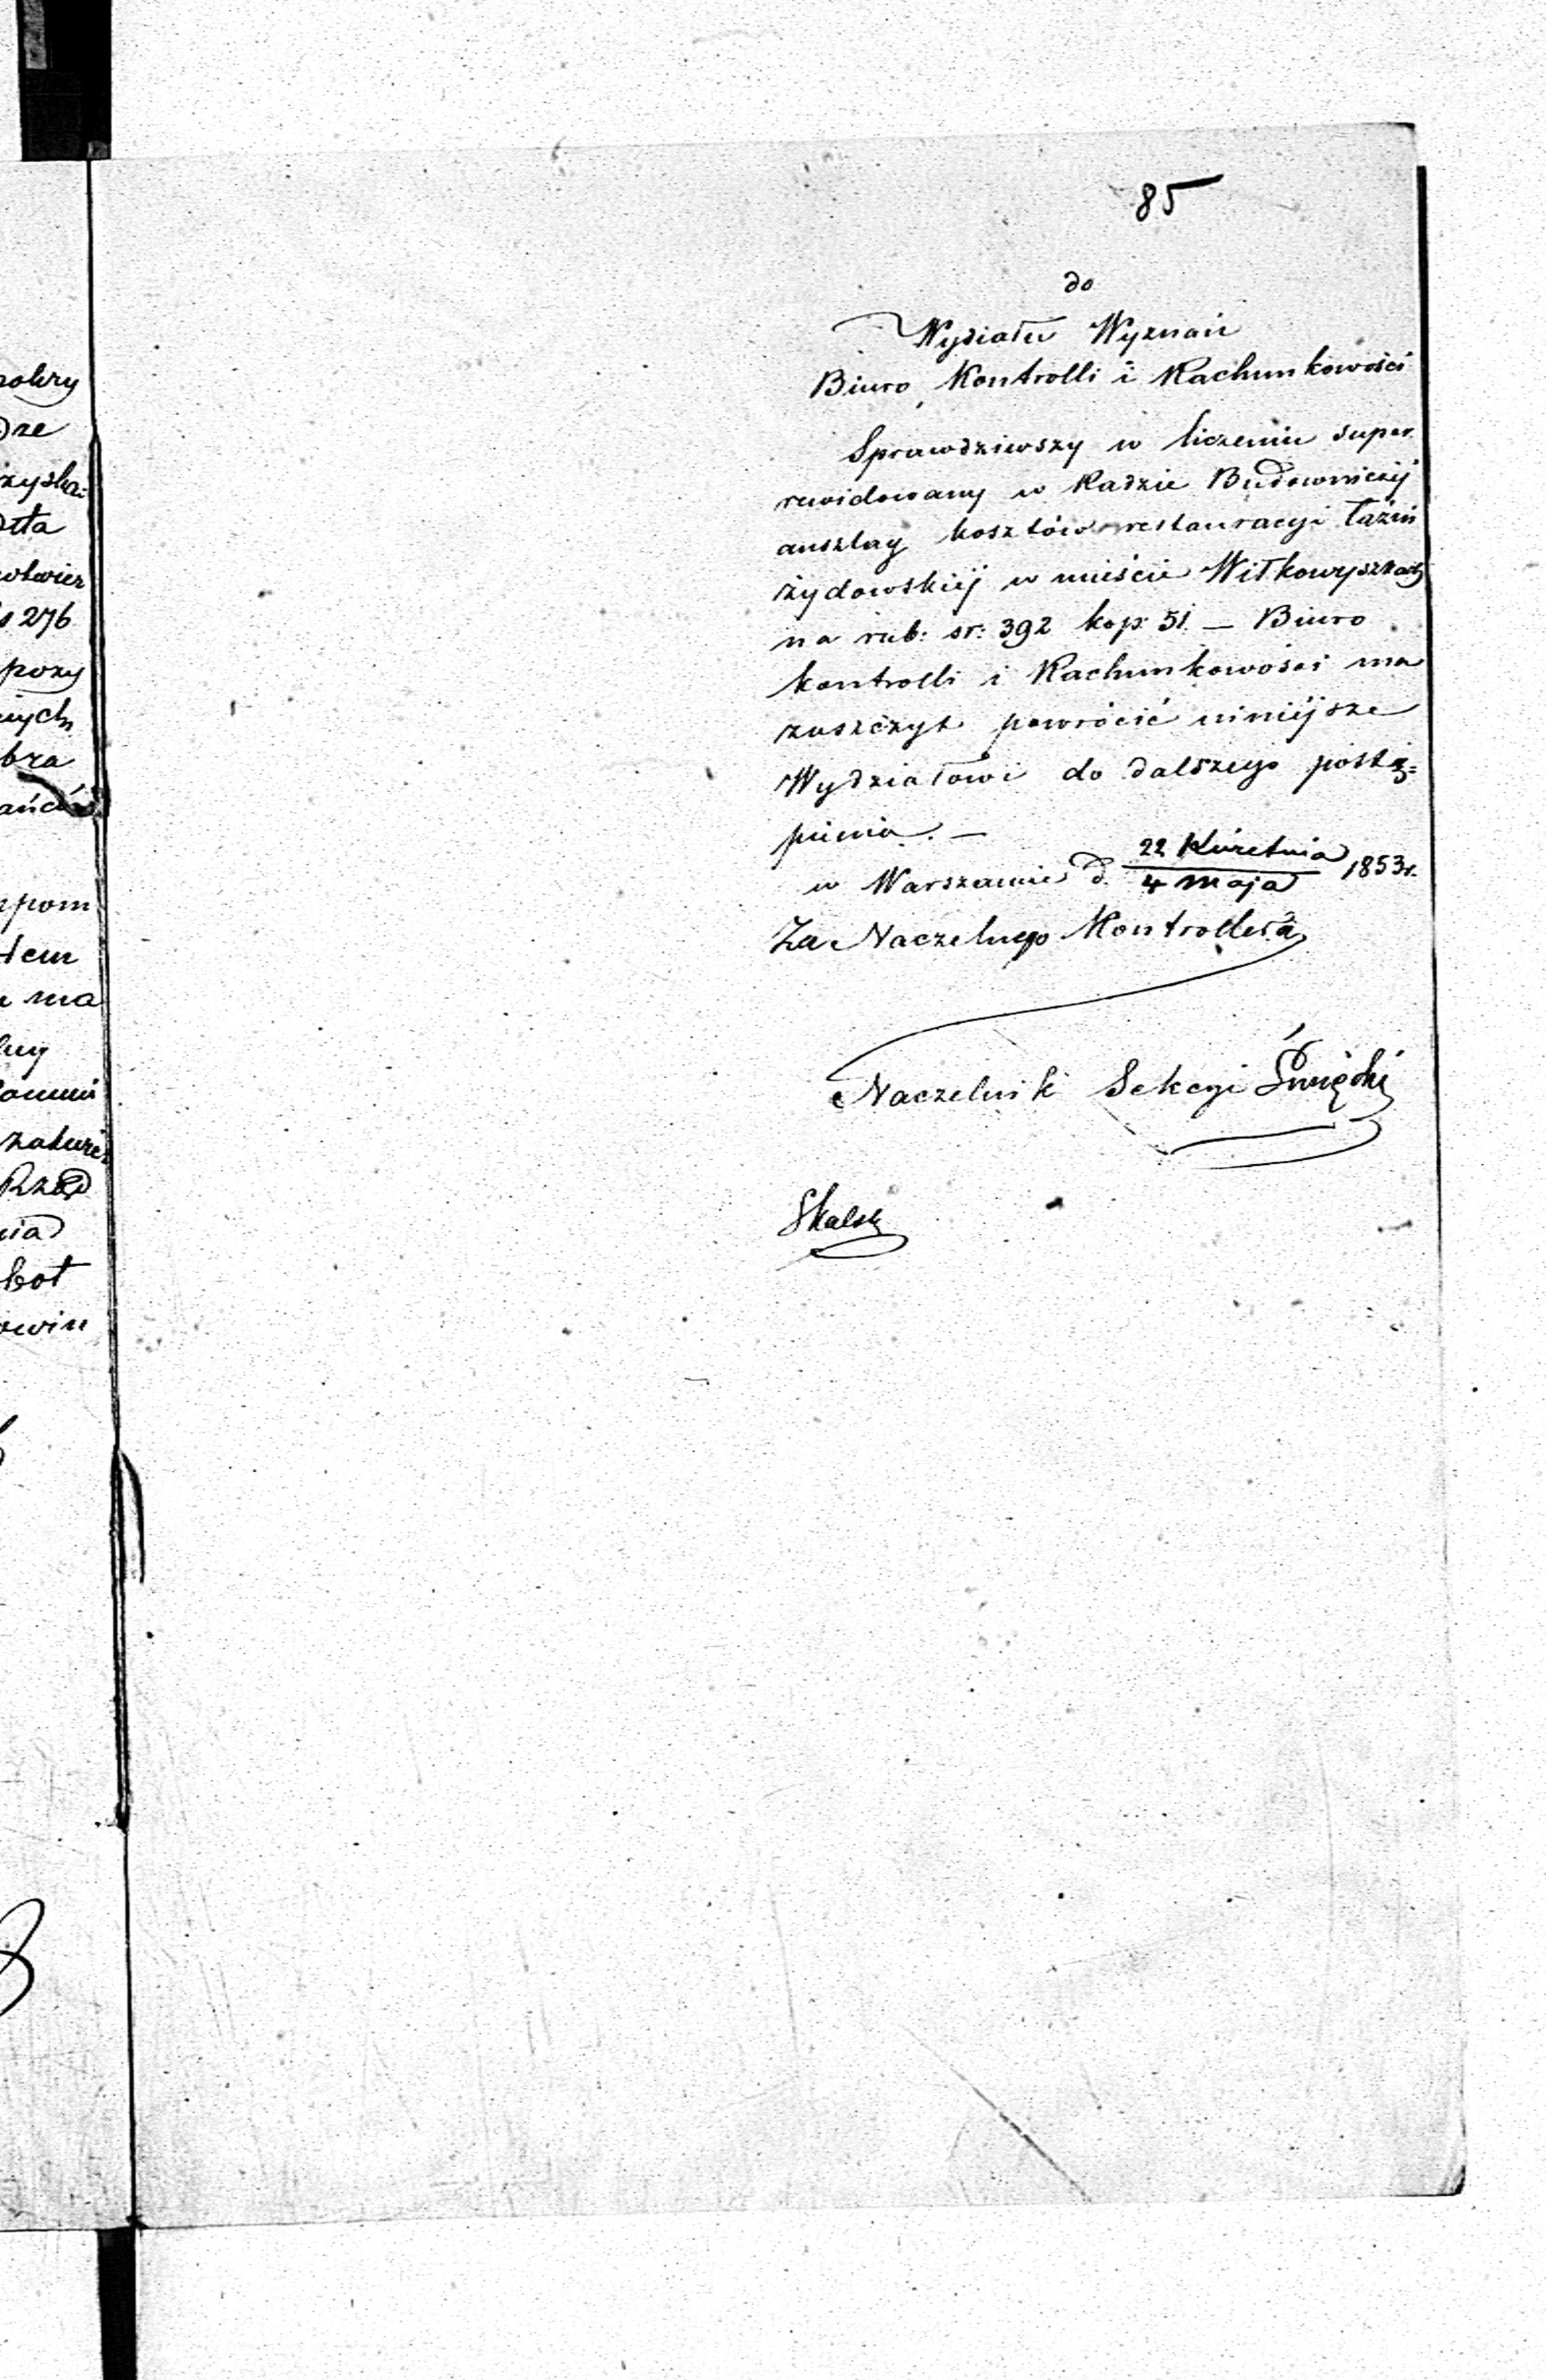 85
do
Wydziału Wyznań
Biuro Kontrolli i Rachunkowości
Sprawdziwszy w liczeniu super
rewidowany w Radzie Budowniczéj
anszlag kosztów restauracyi łaźni
żydowskiéj w mieście Wiłkowyszkach
na rub: sr: 392 kop: 51. — Biuro
kontrolli i Rachunkowości ma
zaszczyt powrócić niniéjsze
Wydziałowi do dalszego postą=
pienia. —
w Warszawie d. 22 Kwietnia / 4 Maja 1853 r.
Za Naczelnego Kontrollera
Naczelnik Sekcyi
Skalski
pokry
dze
zyska:
dła
276
pozy
nych
bra
pom
tem
ma
Rząd
nia
kot